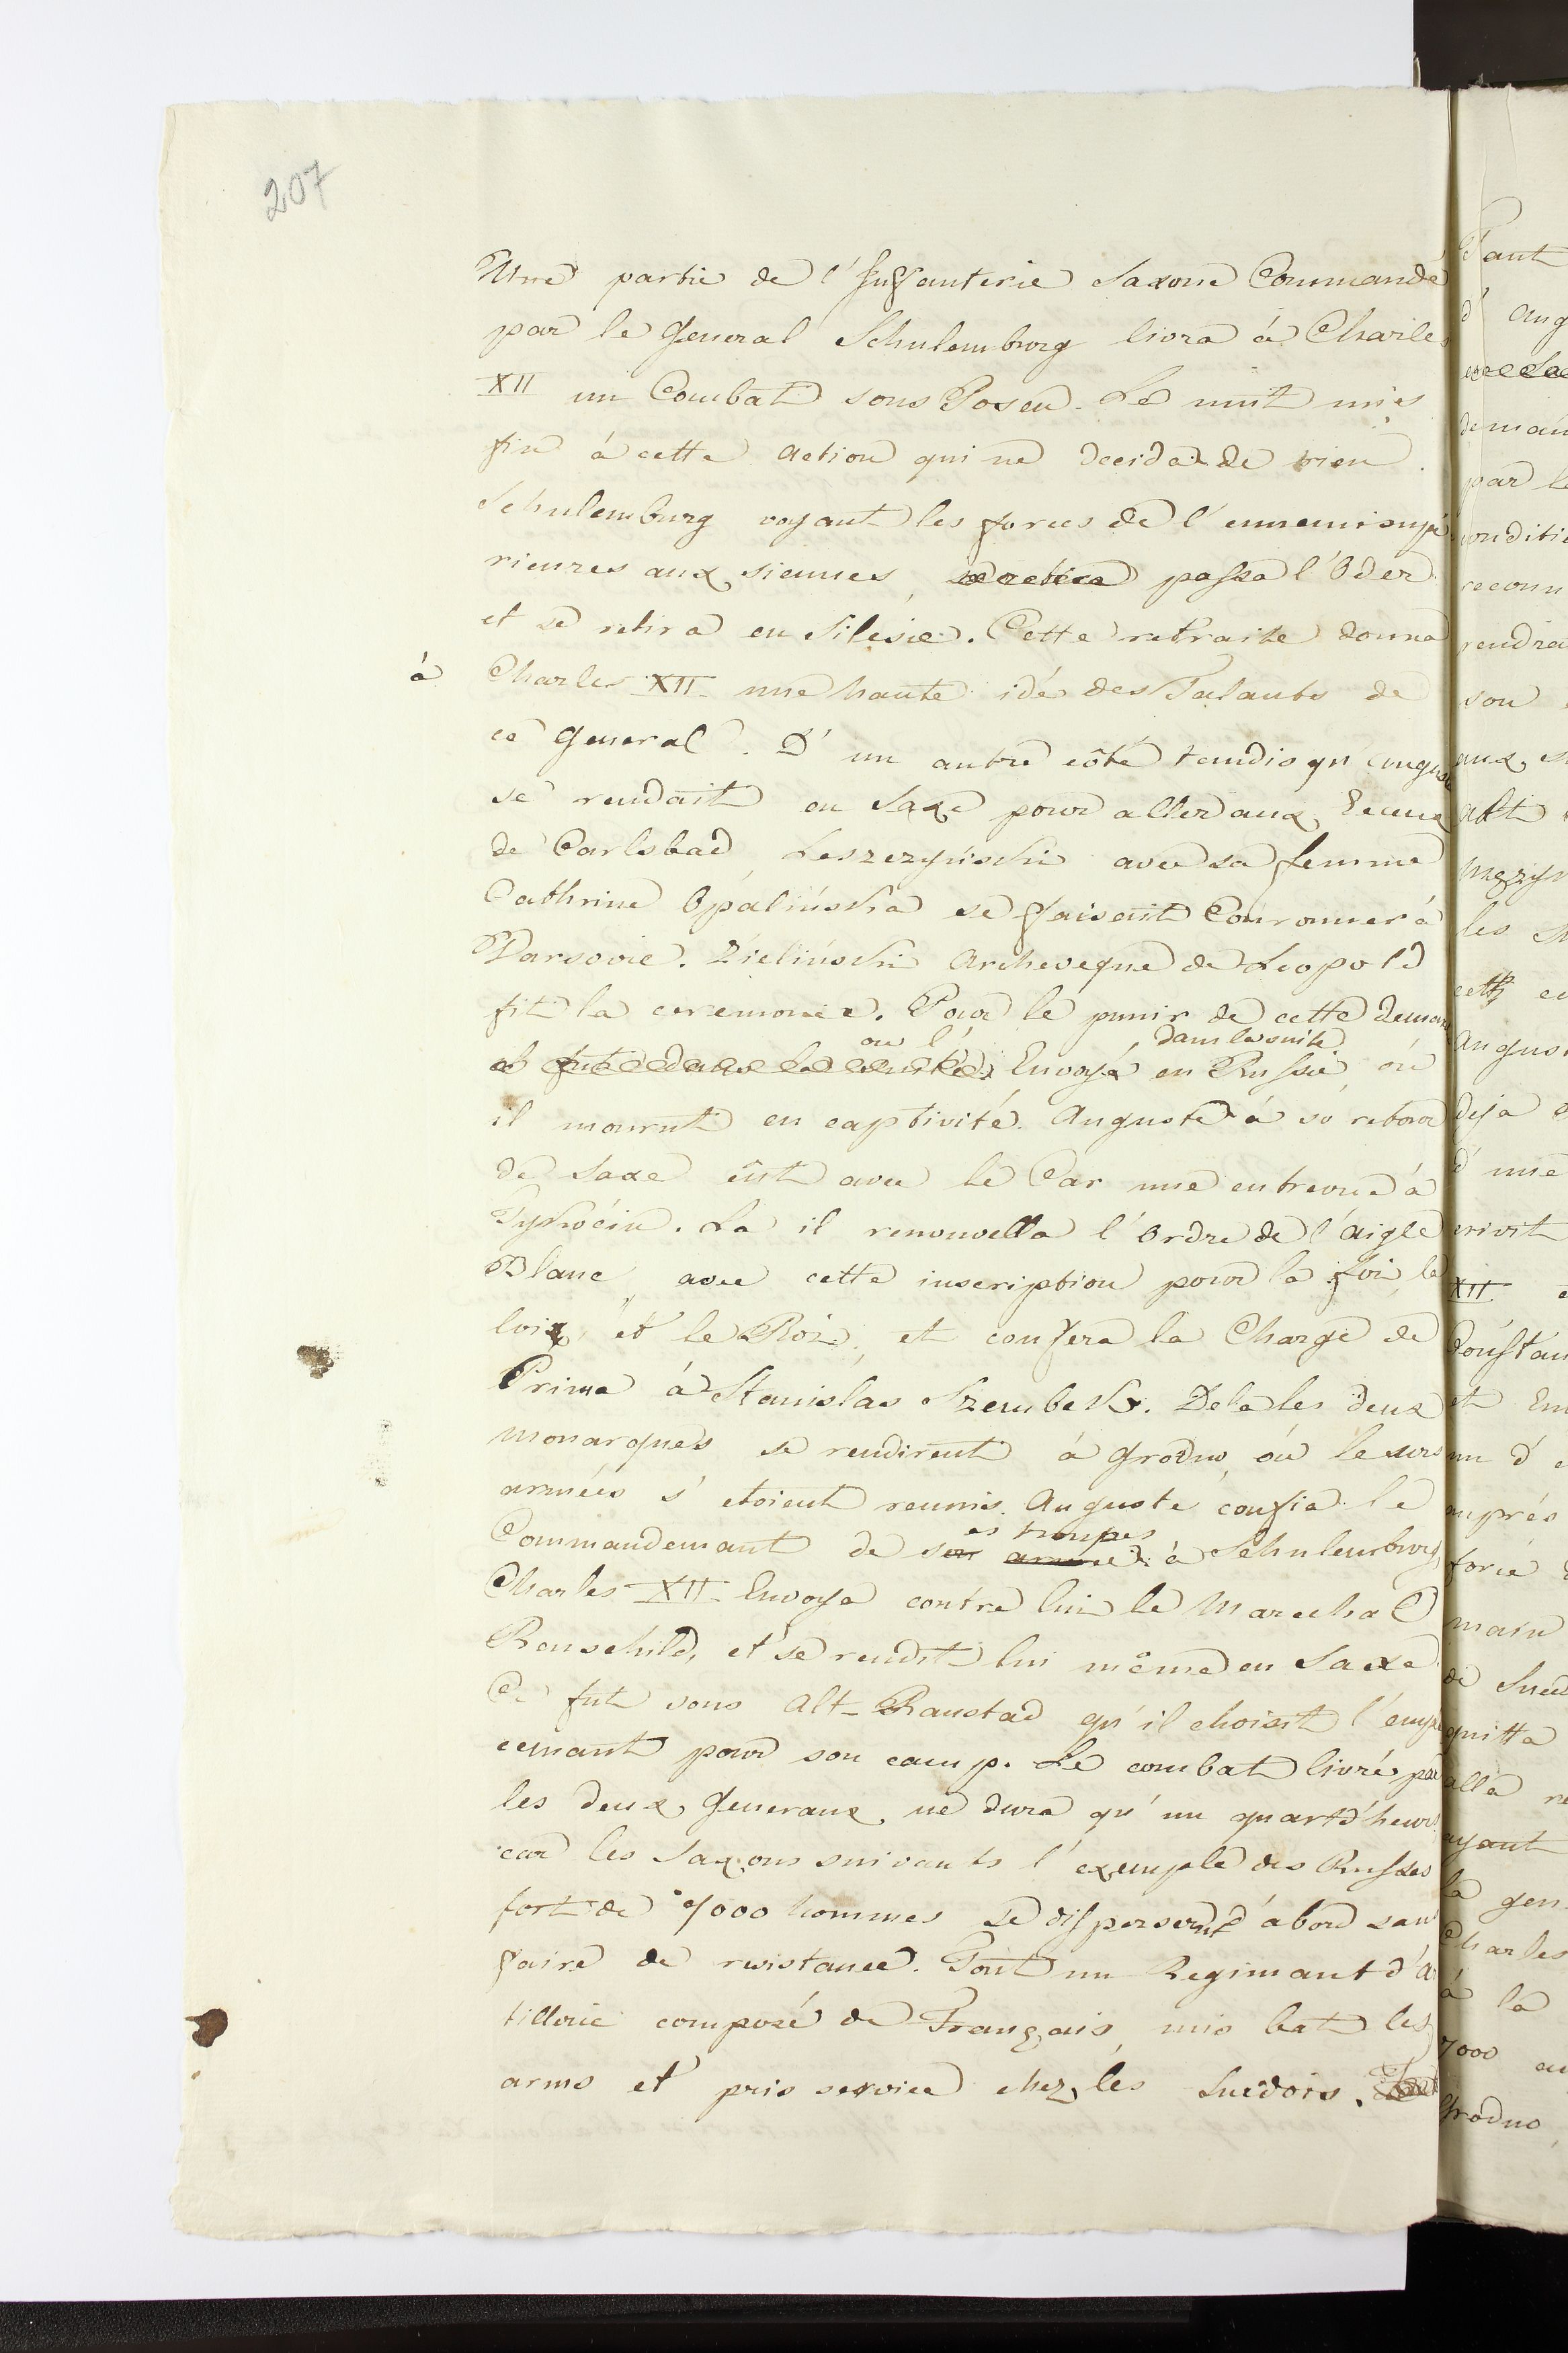 207
Une partie de l'Infanterie Saxone Commandé
par le General Schulemburg livra á Charles
XII un Combat sous Posen. Le nuit mis
fin á cette action qui ne decida de rien.
Schulemburg voyant les forces de l'ennemi supé
rieures aux siennes, se retira passa l'Oder
et se retira en Silesie. Cette retraite donna
á Charles XII une haute idé des Talants de
ce General. D'un autre côté tandis qu'August
se rendait en Saxe pour aller aux Eaux
de Carlsbad Leszczyński avec sa femme
Cathrine Opalińska se faisait Couronner á
Varsovie. Zieliński Archeveque de Leopold
fit la ceremonie. Pour le punir de cette demar
on l' dans la suite
il fut dans la suite Envoyé en Russie, óu
il mourut en captivité. Auguste á so retour
de Saxe eût avec le Car une entrevue á
Tykocin. La il renouvella l'Ordre de l'Aigle
Blanc, avec cette inscription pour la foi, la
loix, et le Roi, et confera la Charge de
Prima á Stanislas Szembek. De la les deux
monarques se rendirent á Grodno, óu leurs
armées s'etoient reunis. Auguste confia le
es troupes
Commandemant de son armée á Schulemburg,
Charles XII Envoya contre lui le Marechal
Renschild, et se rendit lui même en Saxe.
Ce fut sous Alt-Ranstad qu'il choisit l'empla
cemant pour son camp. Le combat livré par
les deux Generaux ne dura qu'un quart d'heure
car les Saxons suivants l'exemple des Russes
fort de 7000 hommes se disperserent d'abord sans
faire de resistance. Tout un Regimant d'ar
tillerie composé de Français, mis bat les
arms et pris service chez les Suedois.
Tant
d'Aug
demain
par le
conditio
reconn
rendra
son
aux
Alt
les
cette
August
deja
d'une
erivit
XII
et Em
un d'
auprés
forcé
main
de Sued
quitta
alla
ayant
la gen
Charles
á la
7000 au
Grodno,